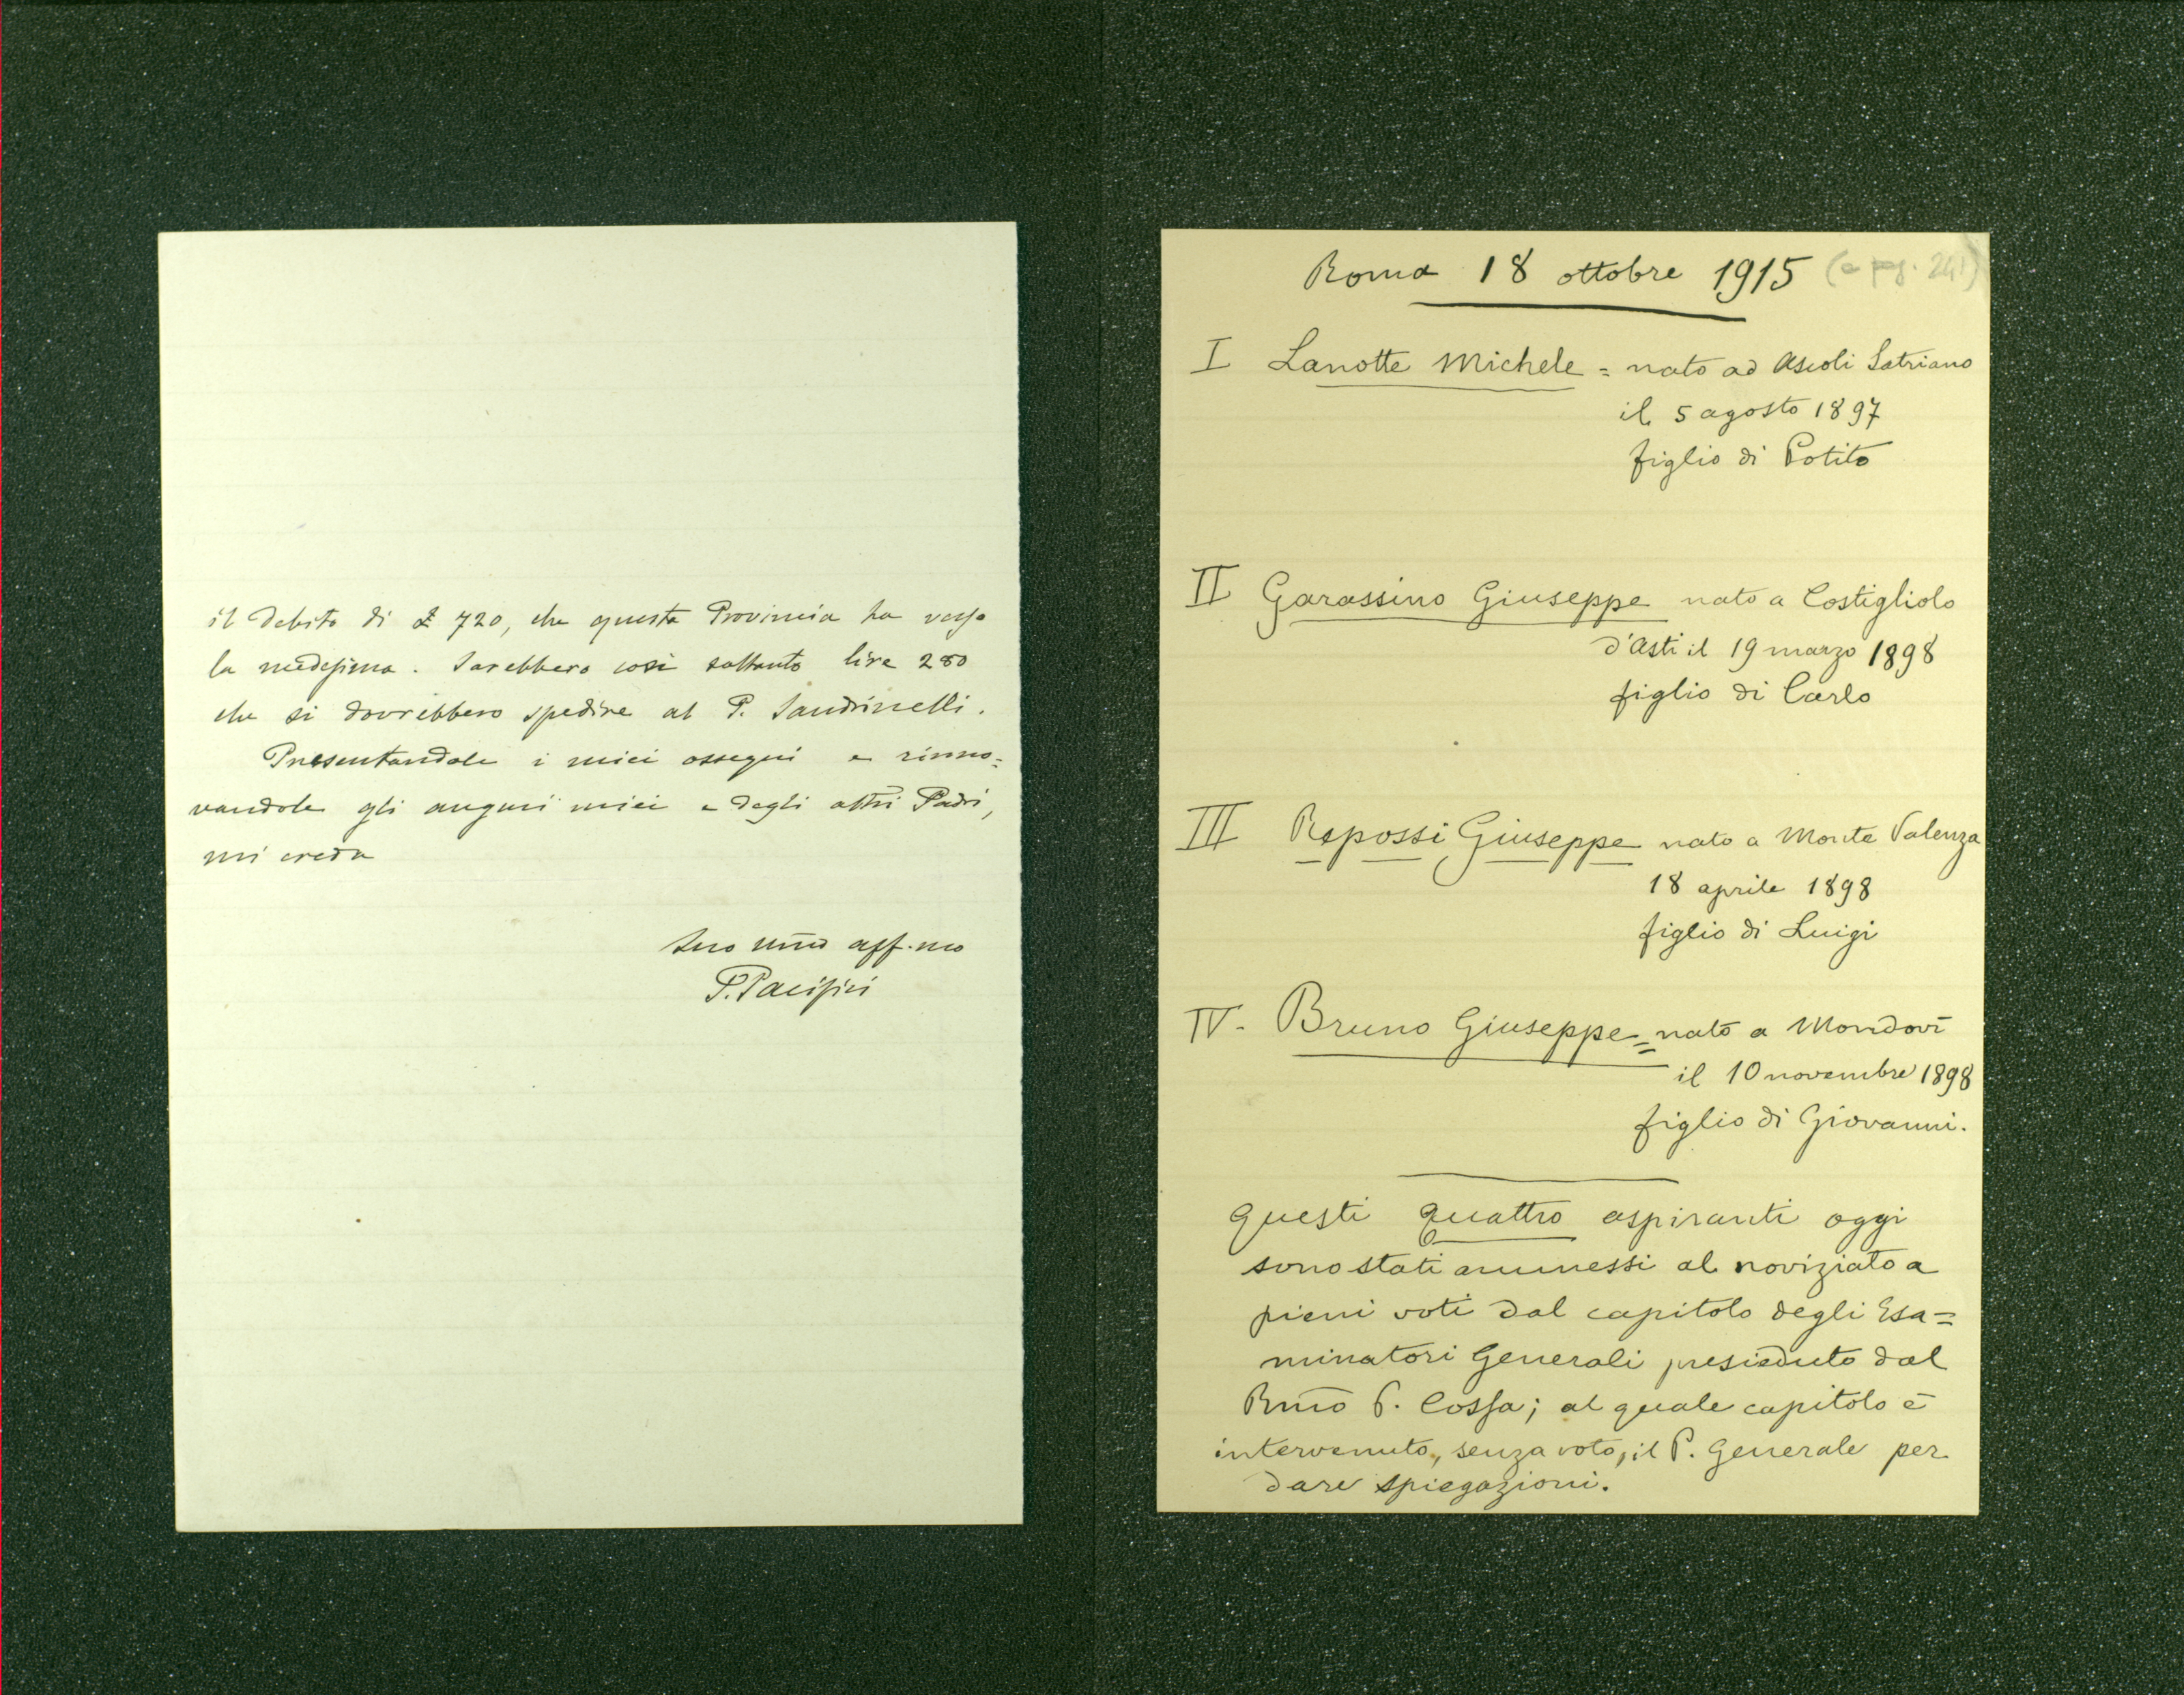 il debito di £ 720, che questa Provincia ha verso
la medesima. Sarebbero così soltanto lire 280
che si dovrebbero spedire al P. Sandrinelli.
Presentandole i miei ossequi e rinno=
vandole gli auguri miei e degli altri Padri,
mi creda
Suo umo aff.mo
P. Pacifici
Roma 18 ottobre 1915 (a pag. 241)
I Lanotte Michele = nato ad Ascoli Satriano
il 5 agosto 1897
figlio di Potito
II Garassino Giuseppe nato a Costigliolo
d'Asti il 19 marzo 1898
figlio di Carlo
III Repossi Giuseppe nato a Monte Valenza
18 aprile 1898
figlio di Luigi
IV - Bruno Giuseppe = nato a Mondovì
il 10 novembre 1898
figlio di Giovanni.
Questi quattro aspiranti oggi
sono stati ammessi al noviziato a
pieni voti dal capitolo degli Esa=
minatori Generali presieduto dal
Rmo P. Cossa; al quale capitolo è
intervenuto, senza voto, il P. Generale per
dare spiegazioni.